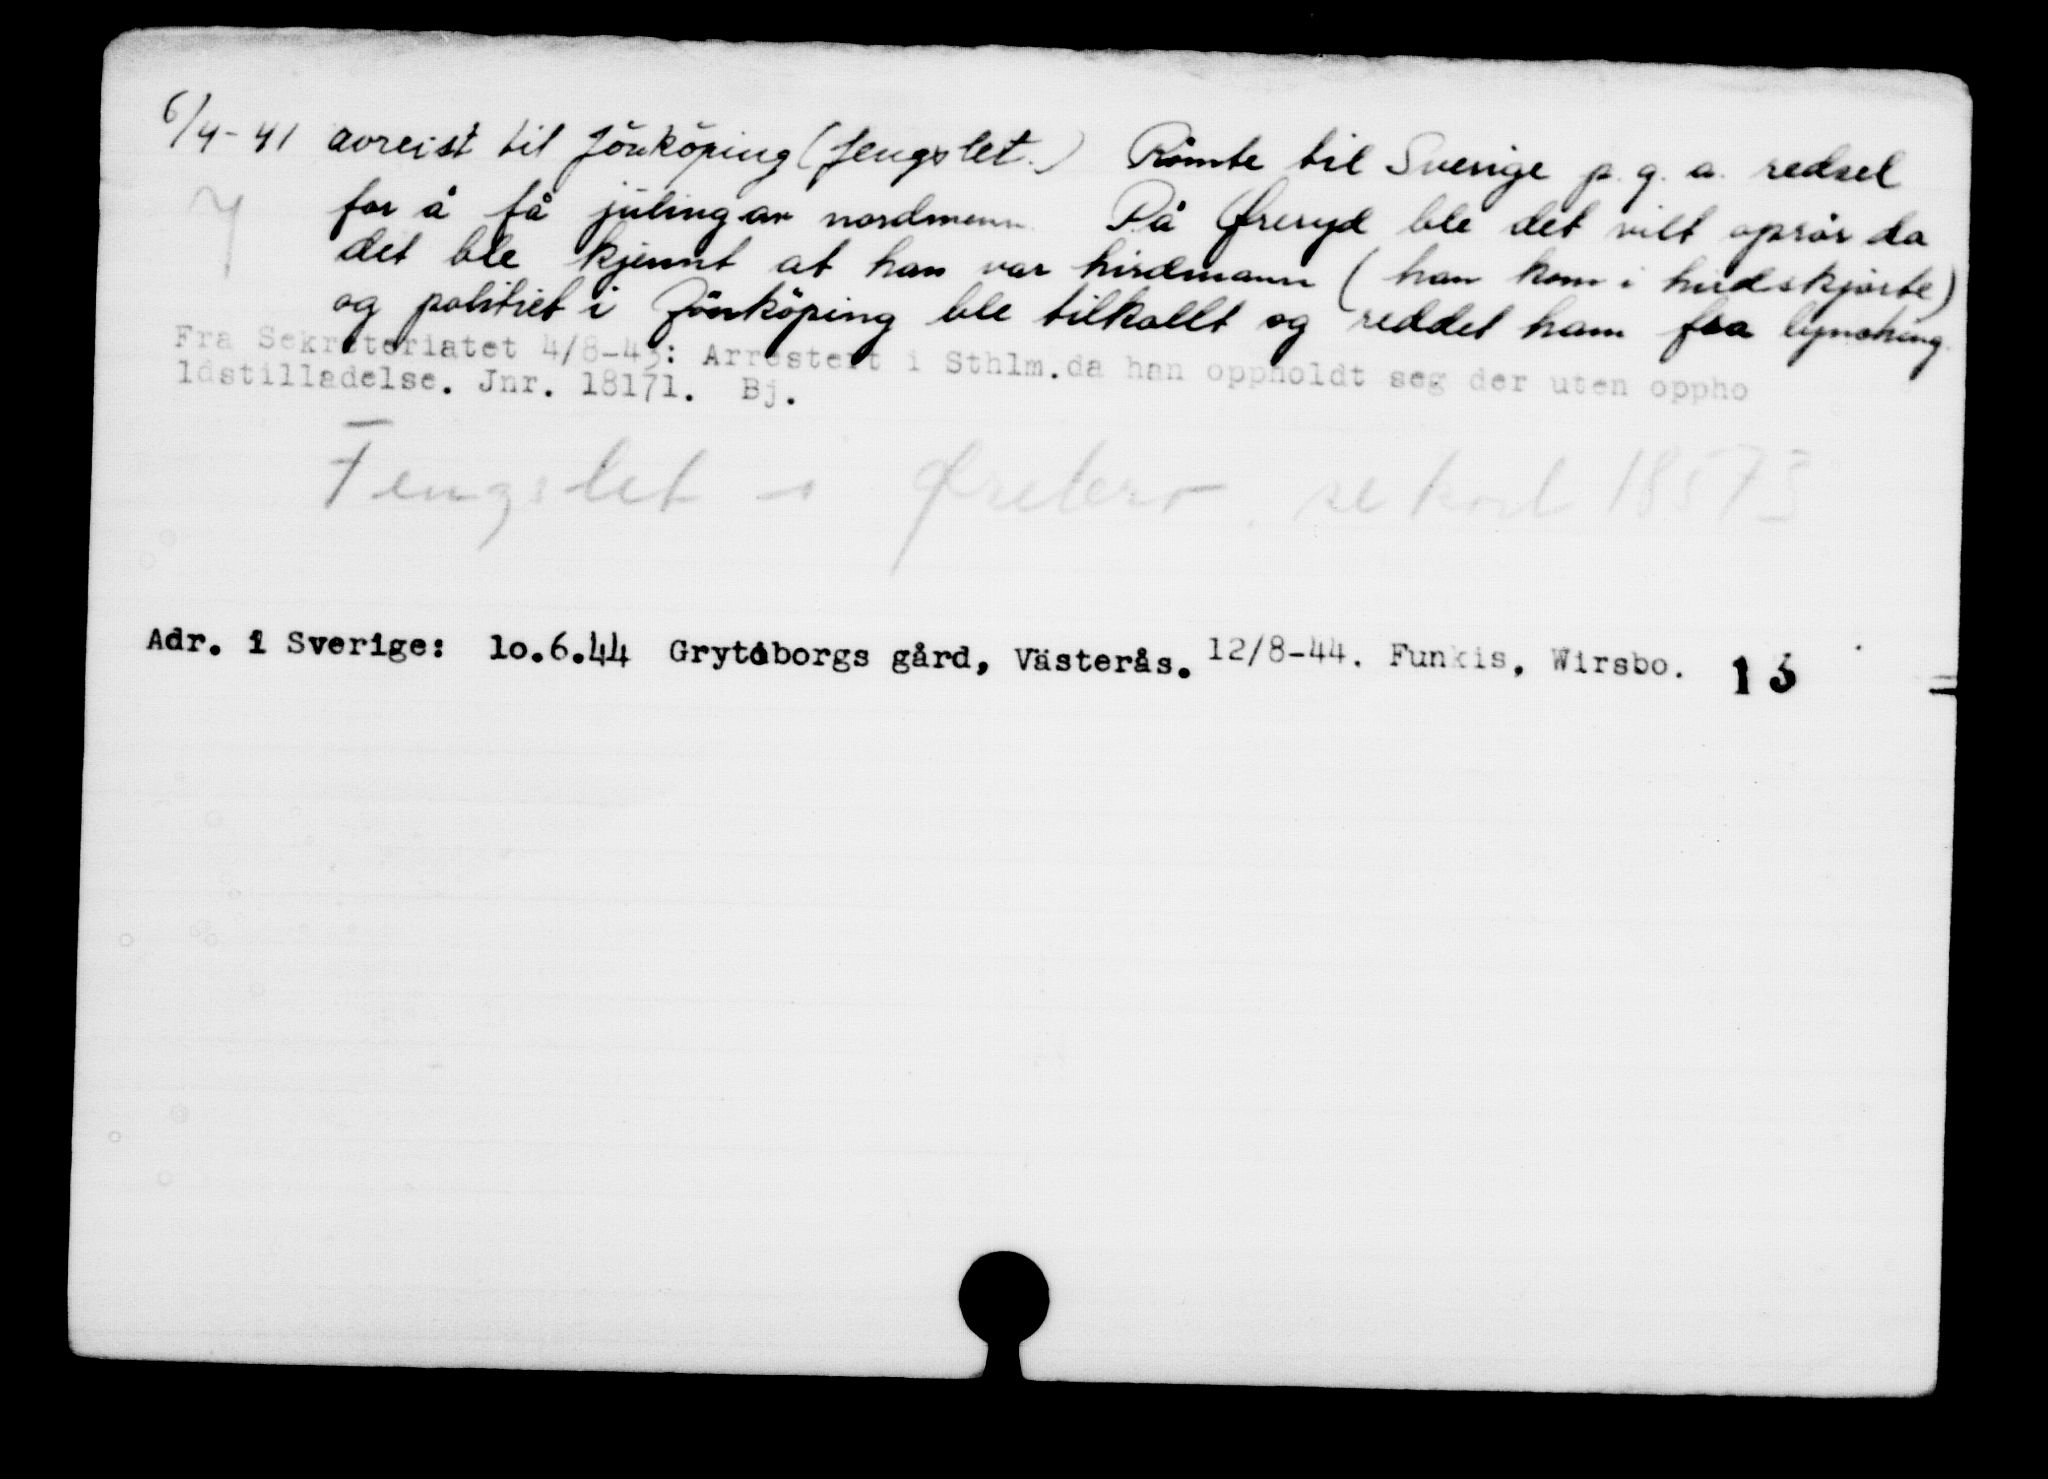 6/4-41 avreist til Jönköping (fengslet.) Römte til Sverige p.g.a. redsel
for å få juling av nordmenn. På Öreryd ble det vilt oprör da
det ble kjennt at han var hirdmann (han kom i hirdskjorte)
og politiet i Jönköping ble tilkallt og reddet ham fra lynching.
Fra Sekretariatet 4/8-43: Arrestert i Sthlm.da han oppholdt seg der uten oppho
ldstilladelse. Jnr. 18171. Bj.
Fengslet i Ørebro. se kort 18573
Adr. i Sverige: lo.6.44 Grytåborgs gård, Västerås. 12/8-44. Funkis, Wirsbo. 13